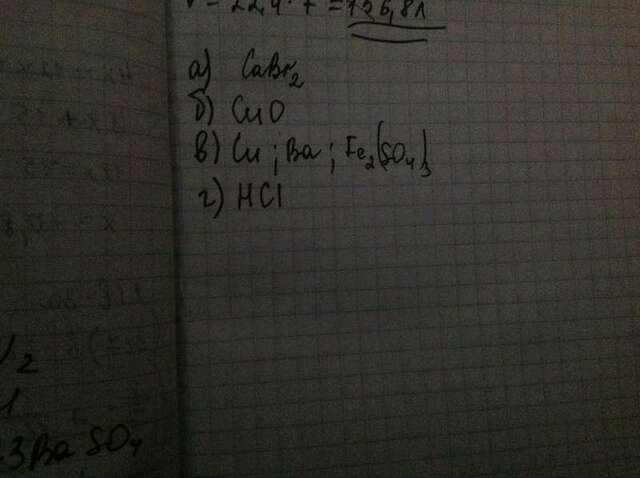 V = 22,4 · 7 = 156,8 л
а) CaBr2
б) CuO
в) Cu ; Ba ; Fe2(SO4)3
г) HCl
3BaSO4